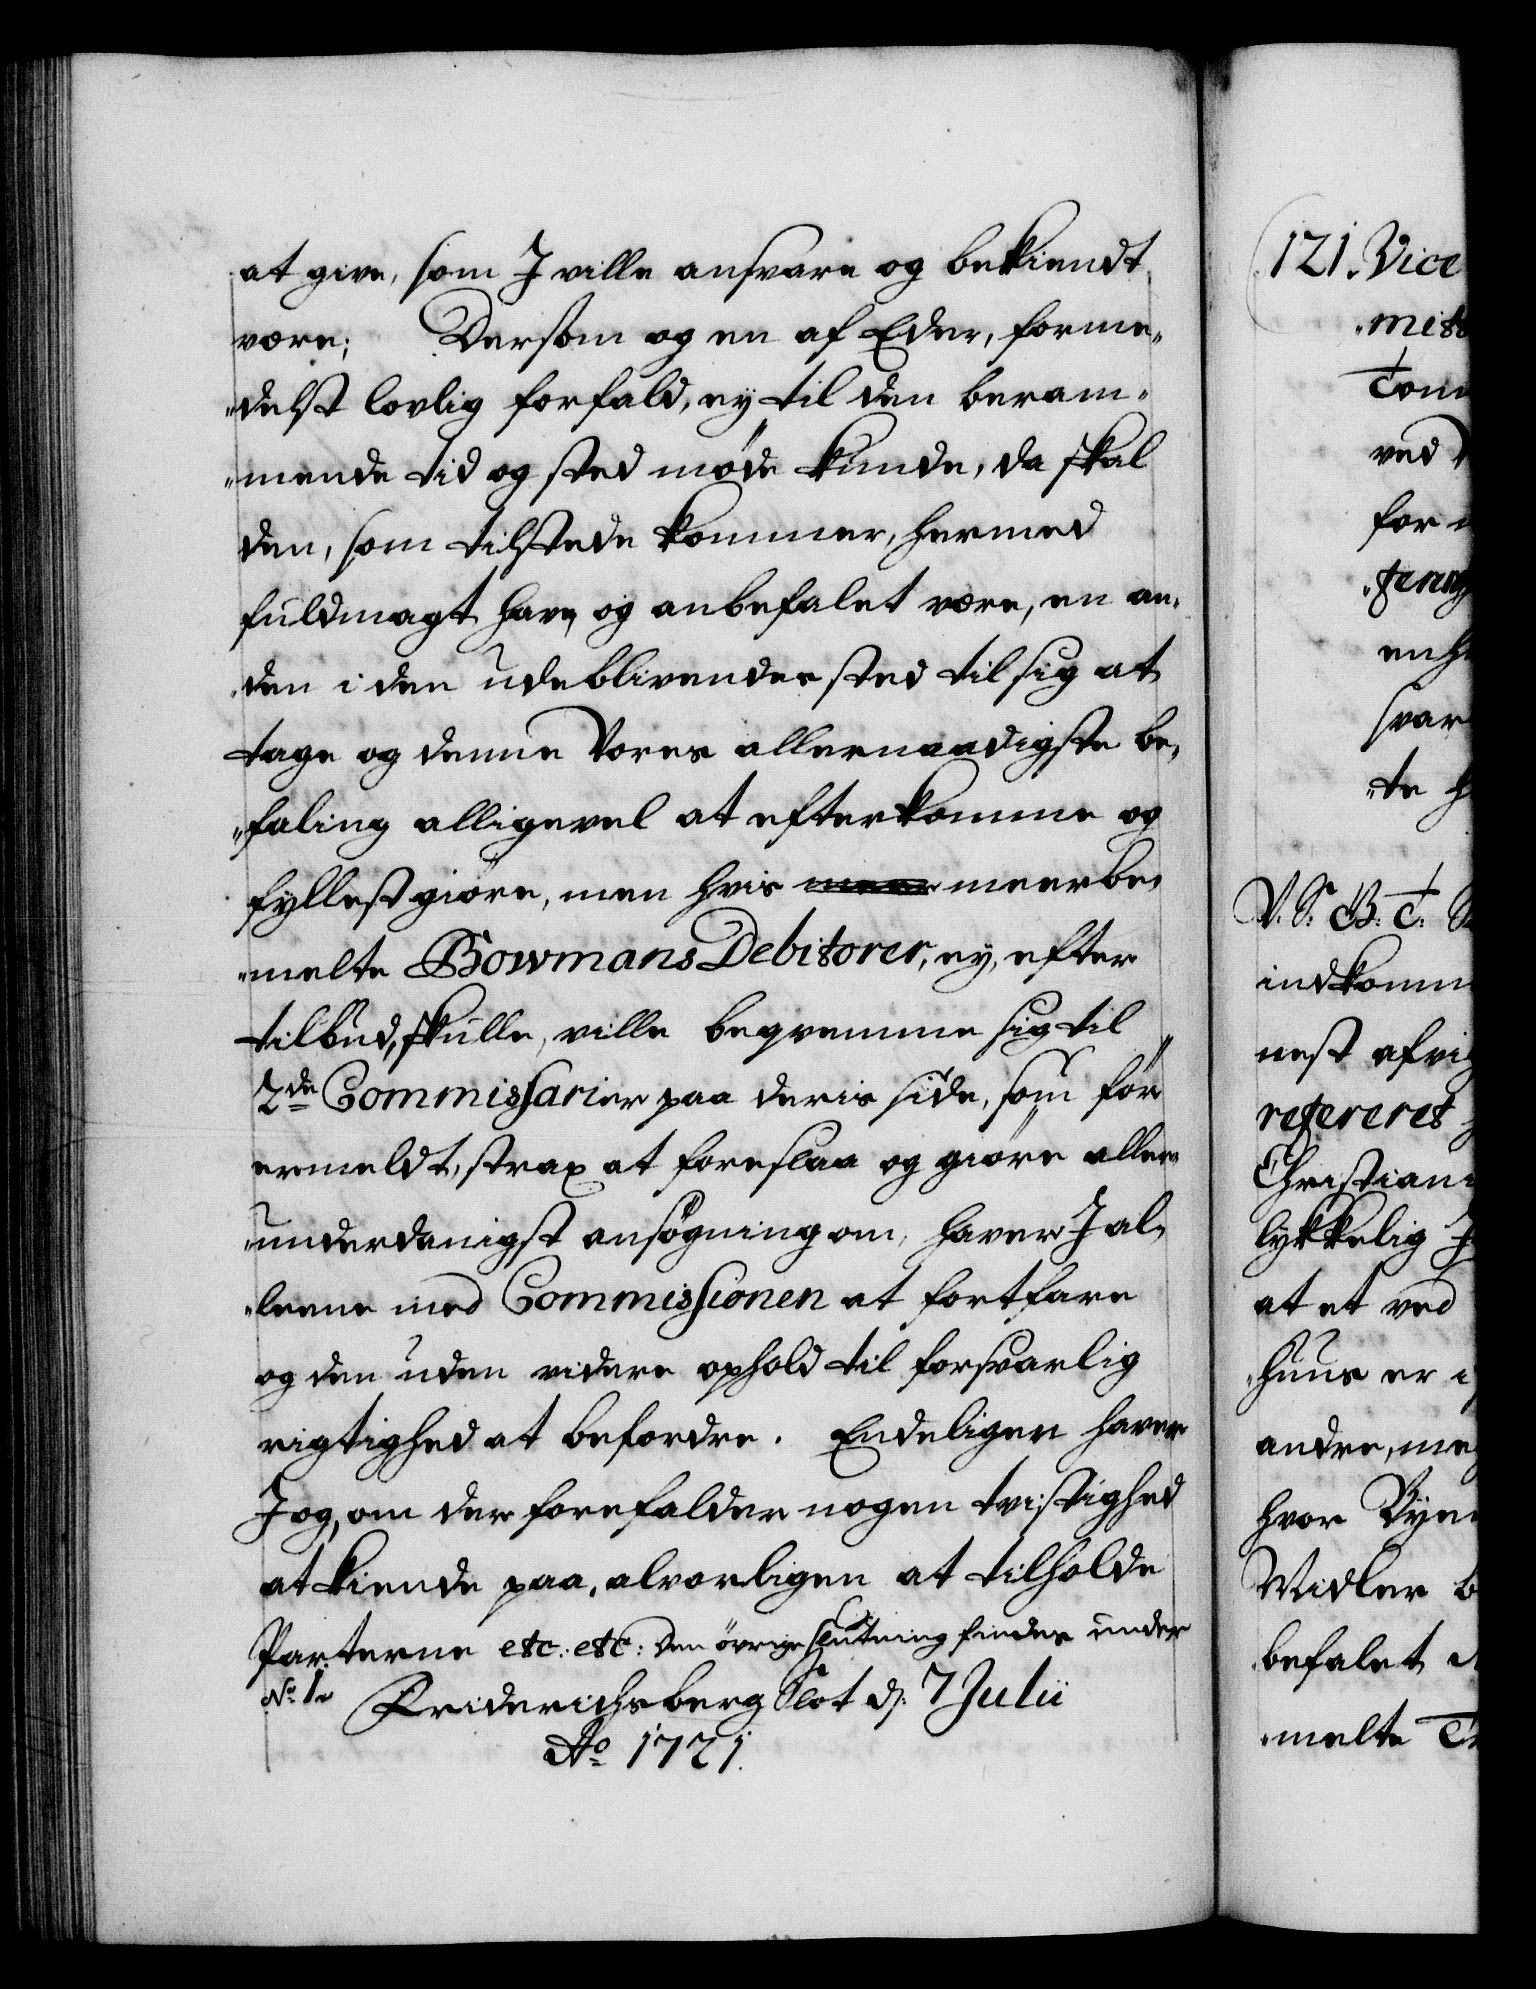 at give, som I ville ansvare og bekiendt
være; Dersom og en af Eder, forme„
„delst lovlig forfald, ey til den beram„
„mende tid og sted møde kunde, da skal
den, som tilstede kommer, hermed
fuldmagt have og anbefalet være, en an„
„den i den udeblivendes sted til sig at
tage og denne Vores allernaadigste be„
„faling alligevel at efterkomme og
fyllestgiøre, men hvis meer meerbe„
„melte Bowmans Debitorer, ey, efter
tilbud, skulle, ville beqvemme sig til
2de Commissarier paa deris side, som før„
ermeldt, strax at foreslaa og giøre aller„
„underdanigst ansøgning om, haver I al„
„leene med Commissionen at fortfare
og den uden videre ophold til forsvarlig
rigtighed at befordre. Endeligen haver
I og, om der forefalder nogen tvistighed
at kiende paa, alvorligen at tilholde
Parterne etc: etc: den øvrige slutning findes under
No 1. Friderichsberg Slot d: 7 Julii
Ao 1721.
121. Vice
„mit
Tön
ved
for
„fen
en h
svar
„te h
V. S. B. T. S
indkomm
nest afvi
refereret
Christian
lykkelig I
at et ved
„huus er i
andre, me
hvor Byen
Midler b
befalet
„melte T